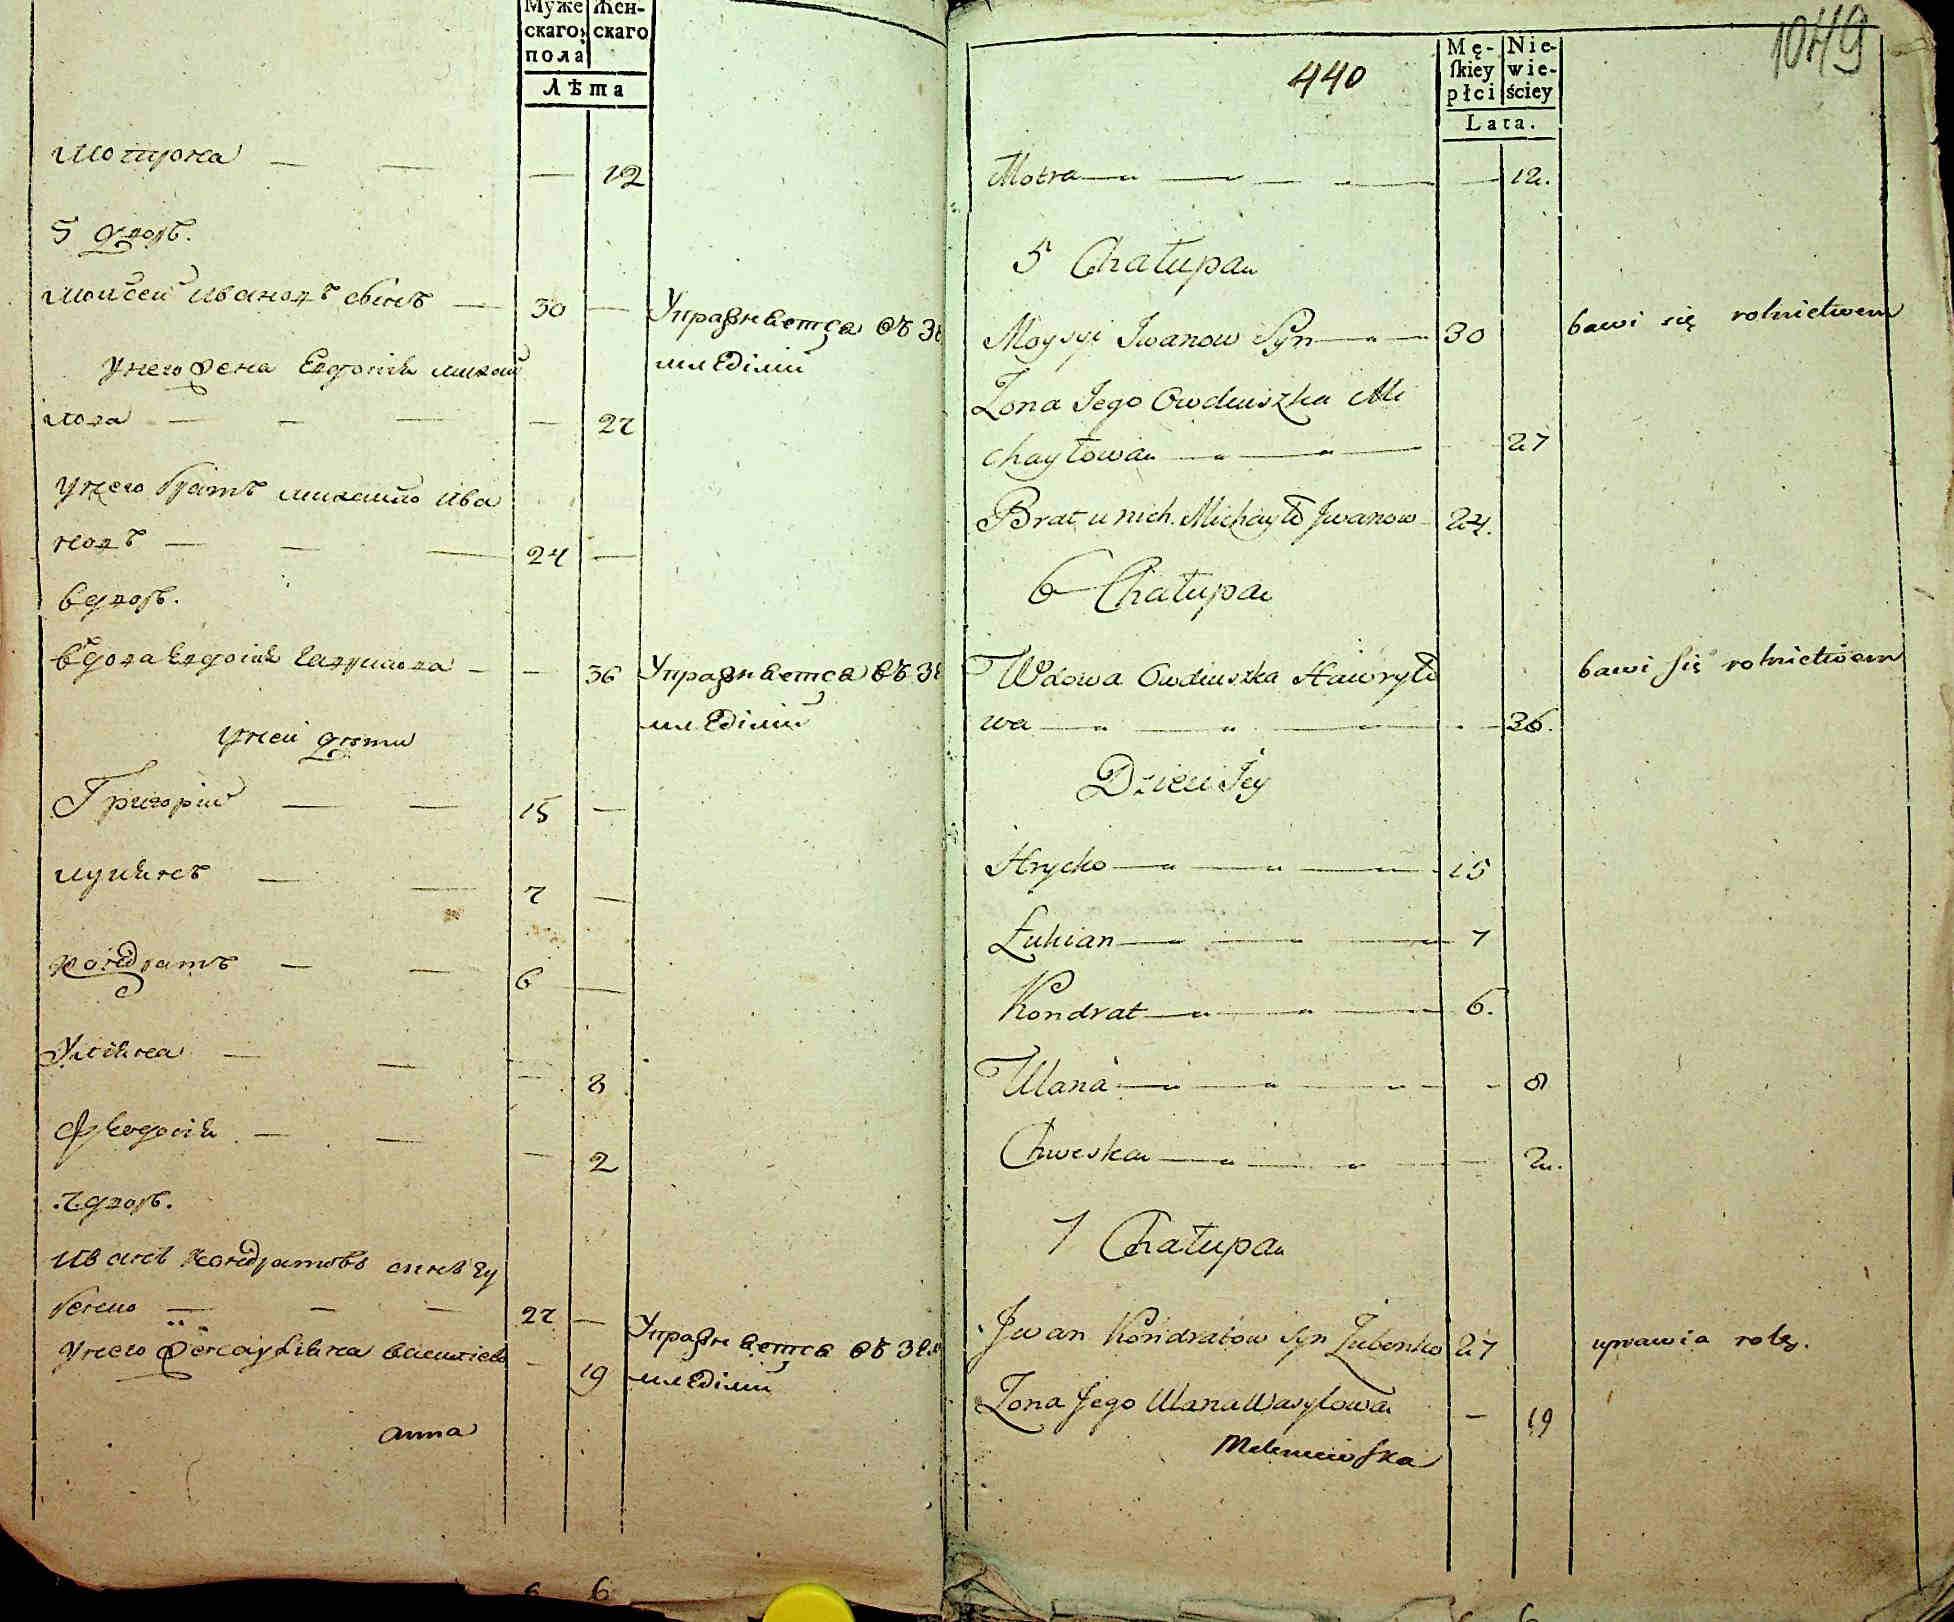 Муже
скаго
пола
Жен-
скаго
Лѣта
Мотрона — — — 12
5 дворъ.
Моисей Ивановъ сынъ — 30 — Упражняется въ
мледѣлии
У него жена Евдокия Михай
лова — — — — 27
У него братъ Михайло Ива
новъ — — — 24 —
6 дворъ.
Вдова Евдокия Гаврилова — — 36 Упражняется въ
мледѣлии
У ней дети
Григорий — — 15 —
Лукиянъ — — 7 —
Кондратъ — — 6 —
Улияна — — — 8
Феодосия — — — 2
7 дворъ.
Иванъ Кондратовъ сынъ Зу
бенко — — — 27 — Упражняется въ
мледѣлии
У него жена Улияна — 19
440
1049
Mę-
skiey
płci
Nie-
wie-
ściey
Lata.
Motra — — — — 12.
5 Chałupa
Moysyi Jwanow Syn — 30 bawi się rolnictwem
Zona Jego Owdiuszka Mi
chayłowa — — — 27
Brat u nich Michayło Jwanow 24.
6 Chałupa
Wdowa Owdiuszka Hawryło
wa — — — — 36. bawi się rolnictwem
Dzieci Jey
Hrycko — — — 15
Łukian — — — 7
Kondrat — — — 6.
Ulana — — — — 8
Chweska — — — 2.
7 Chałupa
Jwan Kondratow Syn Zubenko 27 uprawia rolę.
Zona Jego Ulana Wasylowa — 19